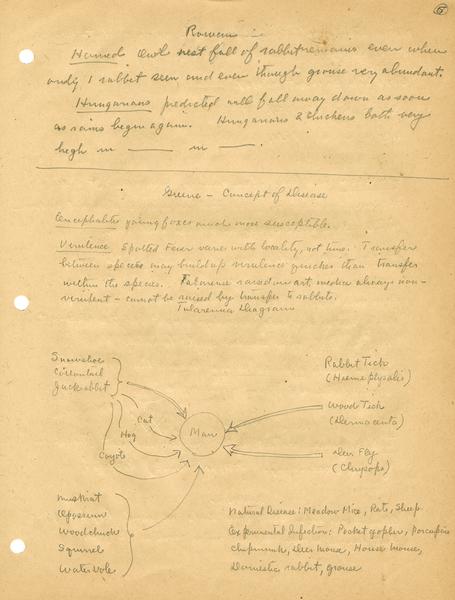 6
Rowan :
Horned Owl nest full of rabbit remains even when
only 1 rabbit seen and even though grouse very abundant.
Hungarians predicted will fall away down as soon
as rains begin again. Hungarians & chickens both very
high in —— in ——.
Greene - Concept of Disease
Encephalitis young foxes much more susceptible.
Virulence Spotted Fever varies with locality, not time. Transfer
between species may build up virulence quicker than transfer
within the species. Tularense raised on art. medica always non-
virulent - cannot be raised by transfer to rabbits.
Tularemia Diagram
Snowshoe
Cottontail
Jackrabbit
Cat
Hog
Coyote
Man
Rabbit Tick
(Haemaphysalis)
Wood Tick
(Dermacenta)
Deer Fly
(Chrysops)
muskrat
Opossum
Woodchuck
Squirrel
Water Vole
Natural Disease: Meadow Mice, Rats, Sheep
Experimental Infection: Pocket gopher, Porcupine
chipmunk, Deer mouse, House mouse,
Domestic rabbit, grouse